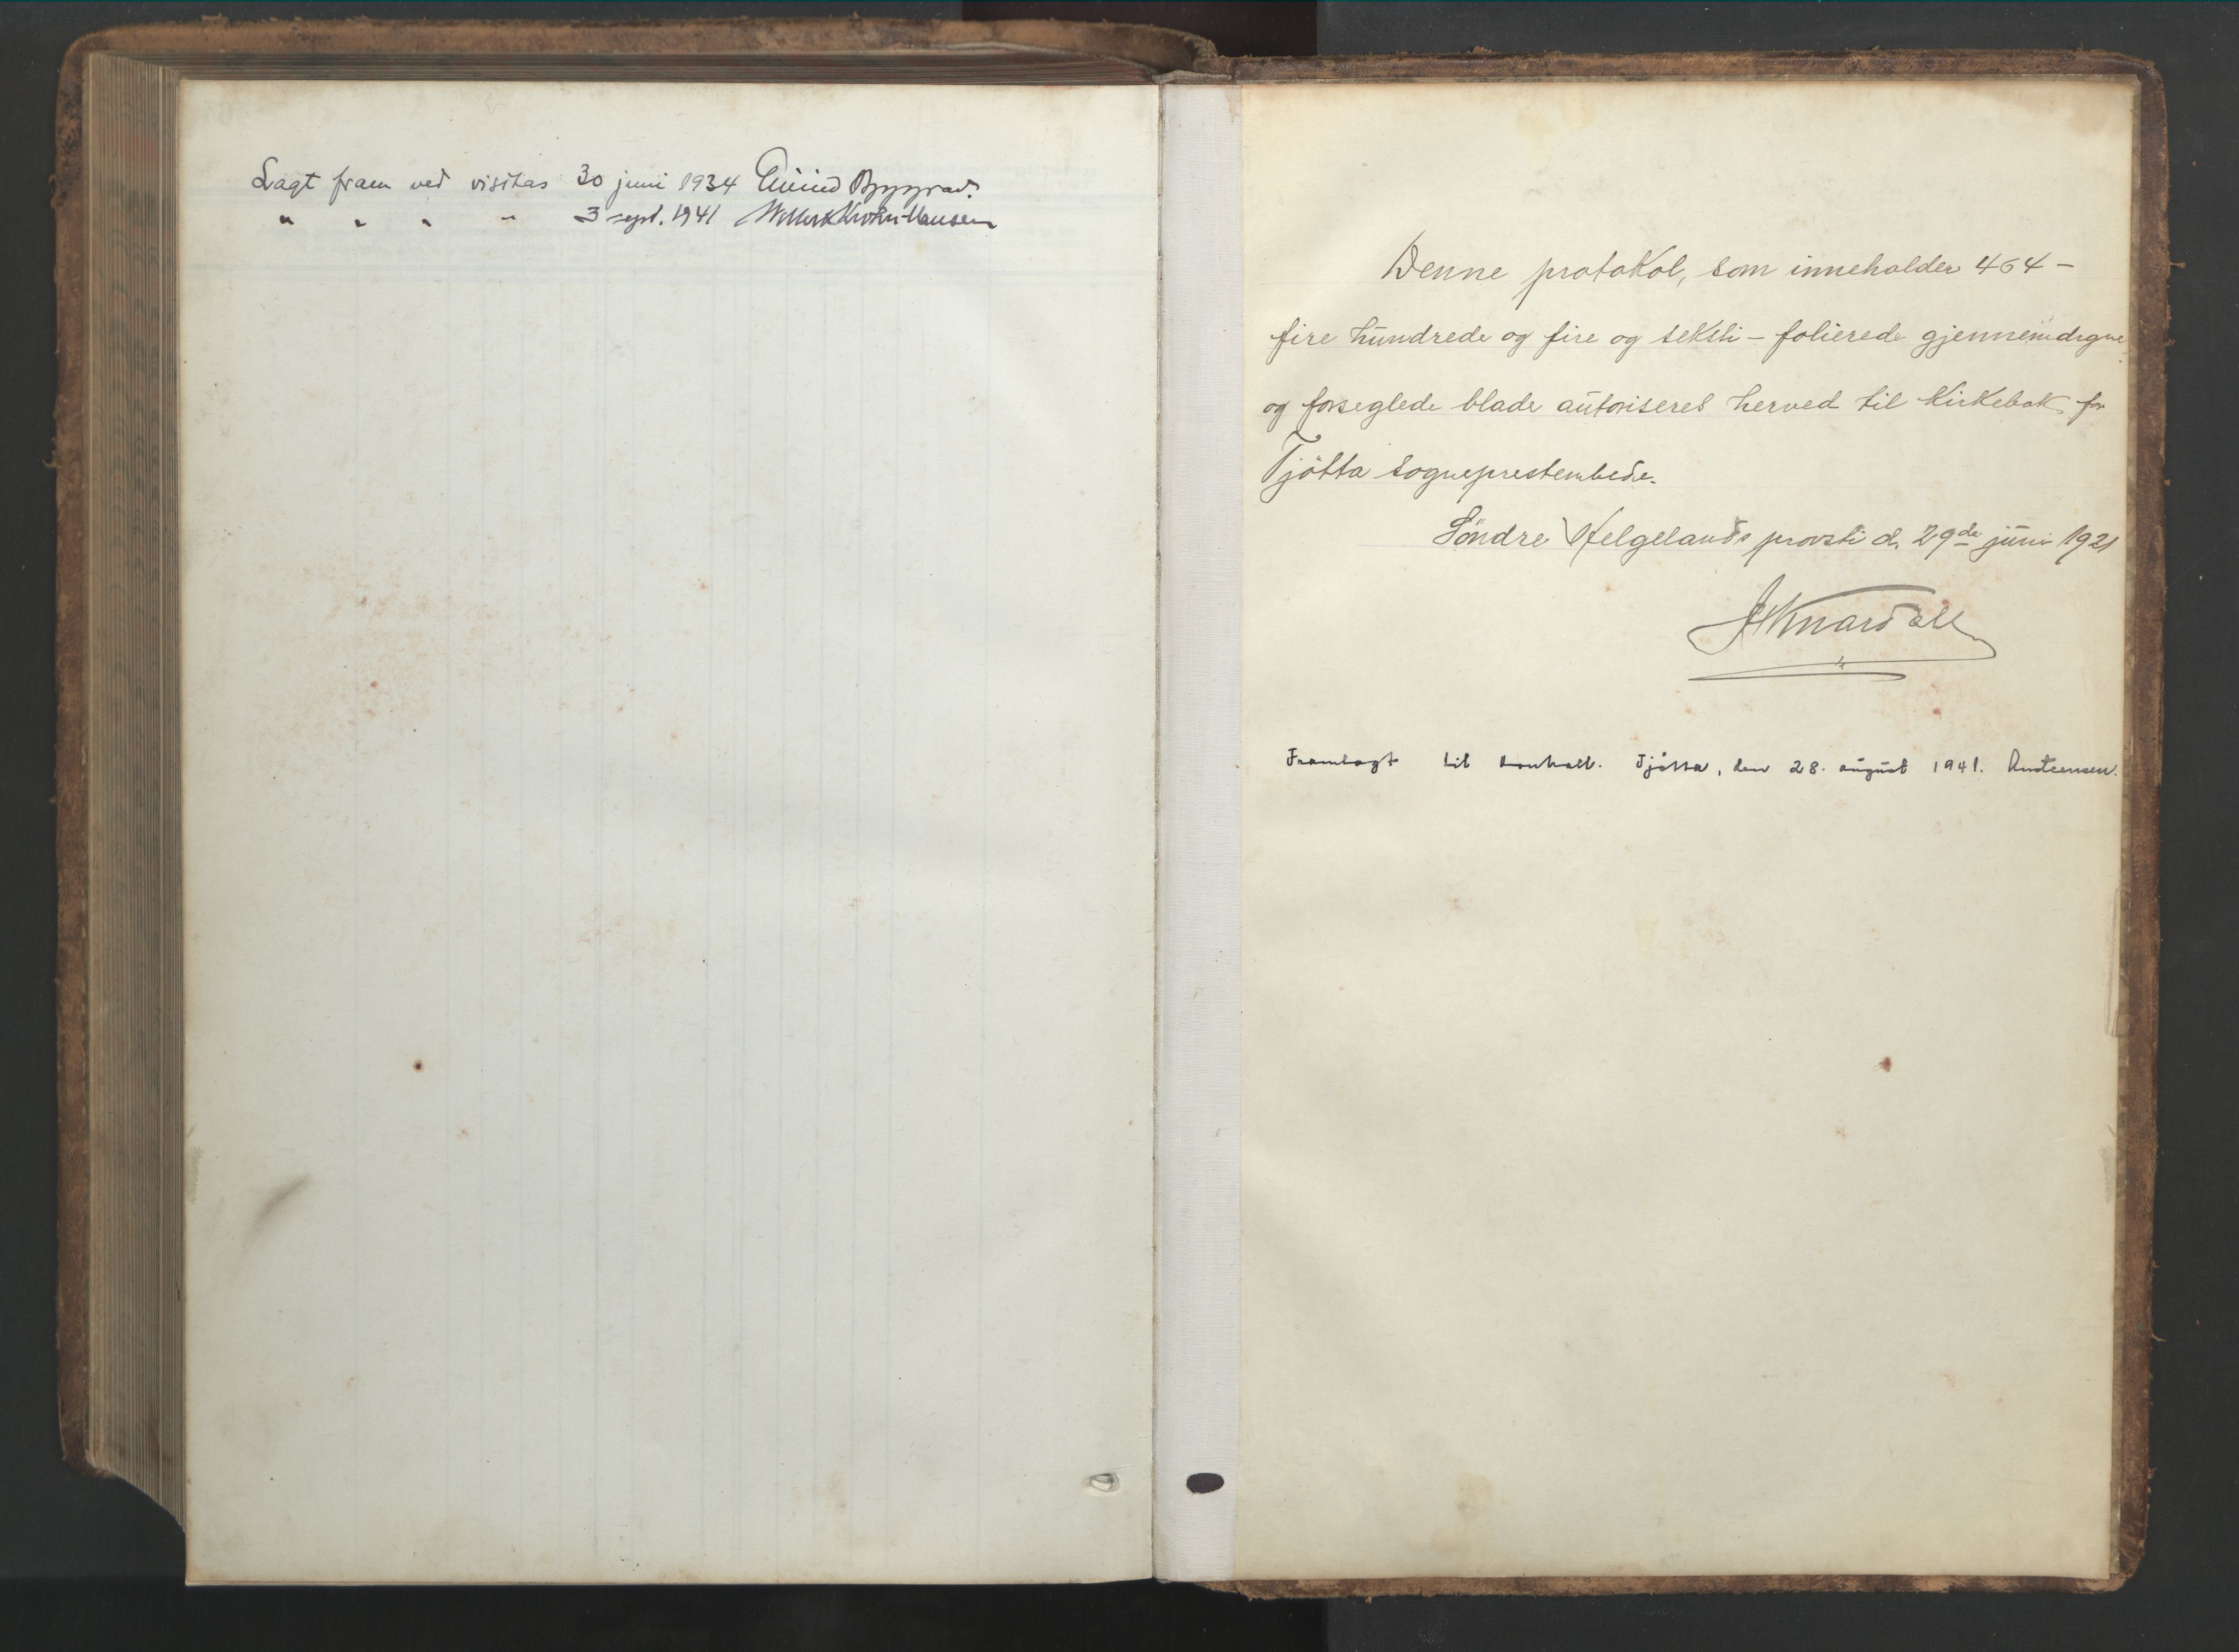 Lagt fram ved visitas 30 juni 1934 Eivind Berggrav.
" " " " 3 sept. 1941 Wollert Krohn-Hansen
Denne protokol, som inneholder 464 -
fire hundrede og fire og seksti - folierede gjennemdragne
og forseglede blade autoriseres herved til kirkebok for
Tjötta sogneprestembede.
Söndre Helgelands provsti d. 29de juni 1921
Framlagt til kontroll. Tjötta, den 28. august 1941.